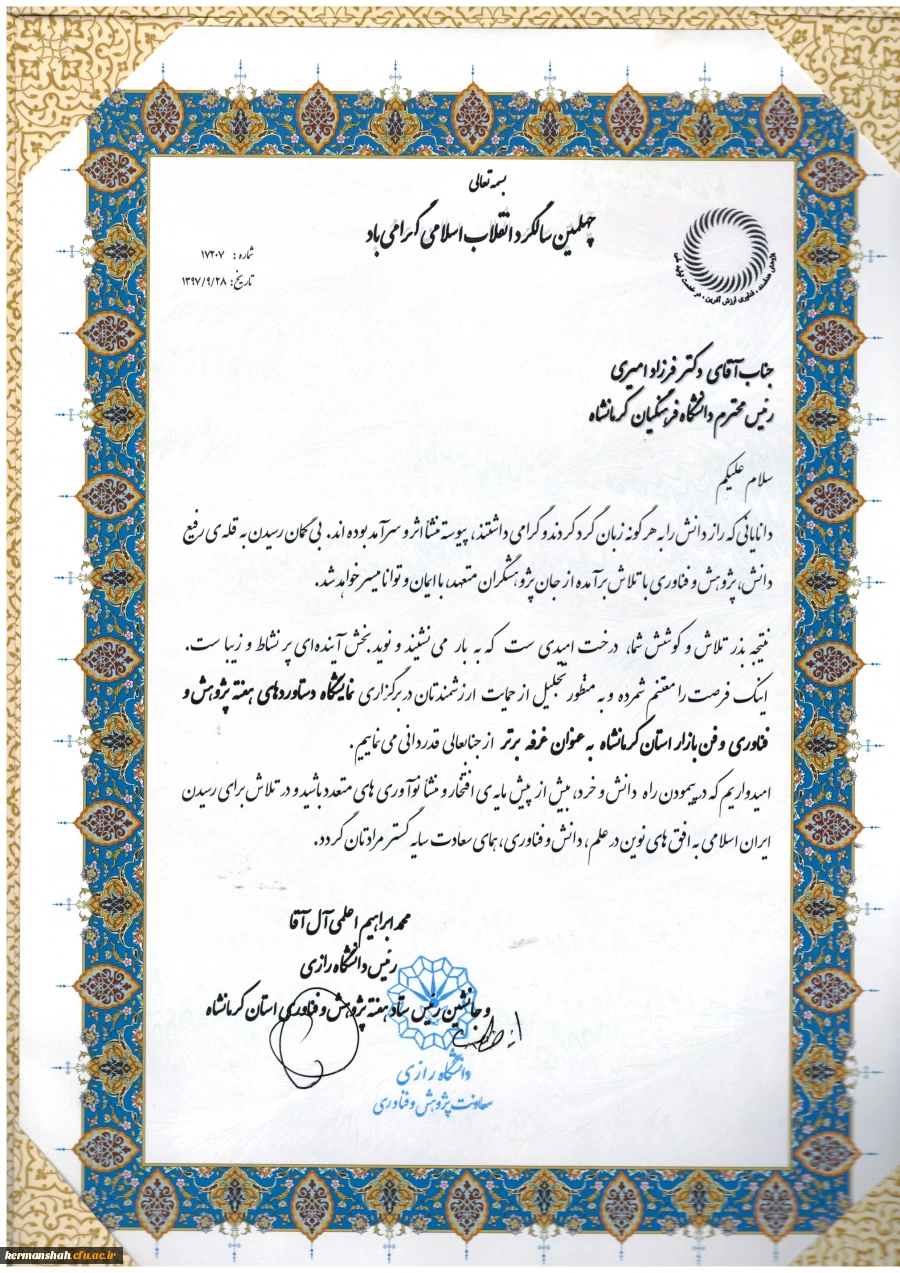 بسمه تعالی
چهلمین سالگرد انقلاب اسلامی گرامی باد
شماره : ۱۷۲۰۷
تاریخ: ۱۳۹۷/۹/۲۸
پژوهش هدفمند ، فناوری ارزش آفرین ، در خدمت تولید ملی
جناب آقای دکتر فرزاد امیری
رئیس محترم دانشگاه فرهنگیان کرمانشاه
سلام علیکم
دانایانی که راز دانش را به هر گونه زبان گرد کردند و گرامی داشتند، پیوسته منشأ اثر و سرآمد بوده اند. بی گمان رسیدن به قله ی رفیع
دانش، پژوهش و فناوری با تلاش برآمده از جان پژوهشگران متعهد، با ایمان و توانا میسر خواهد شد.
نتیجه بذر تلاش و کوشش شما، درخت امیدی ست که به بار می نشیند و نوید بخش آینده ای پر نشاط و زیبا ست.
اینک فرصت را مغتنم شمرده و به منظور تجلیل از حمایت ارزشمندتان در برگزاری نمایشگاه دستاوردهای هفته پژوهش و
فناوری و فن بازار استان کرمانشاه به عنوان غرفه برتر از جنابعالی قدردانی می نماییم.
امیدواریم که در پیمودن راه دانش و خرد، بیش از پیش مایه ی افتخار و منشأ نوآوری های متعدد باشید و در تلاش برای رسیدن
ایران اسلامی به افق های نوین در علم، دانش و فناوری، همای سعادت سایه گستر مرادتان گردد.
محمد ابراهیم اعلمی آل آقا
رئیس دانشگاه رازی
و جانشین رئیس ستاد هفته پژوهش و فناوری استان کرمانشاه
دانشگاه رازی
معاونت پژوهش و فناوری
kermanshah.cfu.ac.ir